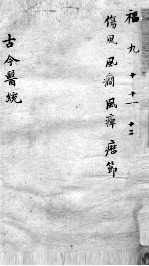 福 九 十 十一 十二
傷風 風癇 風痺 痦節
古今醫統